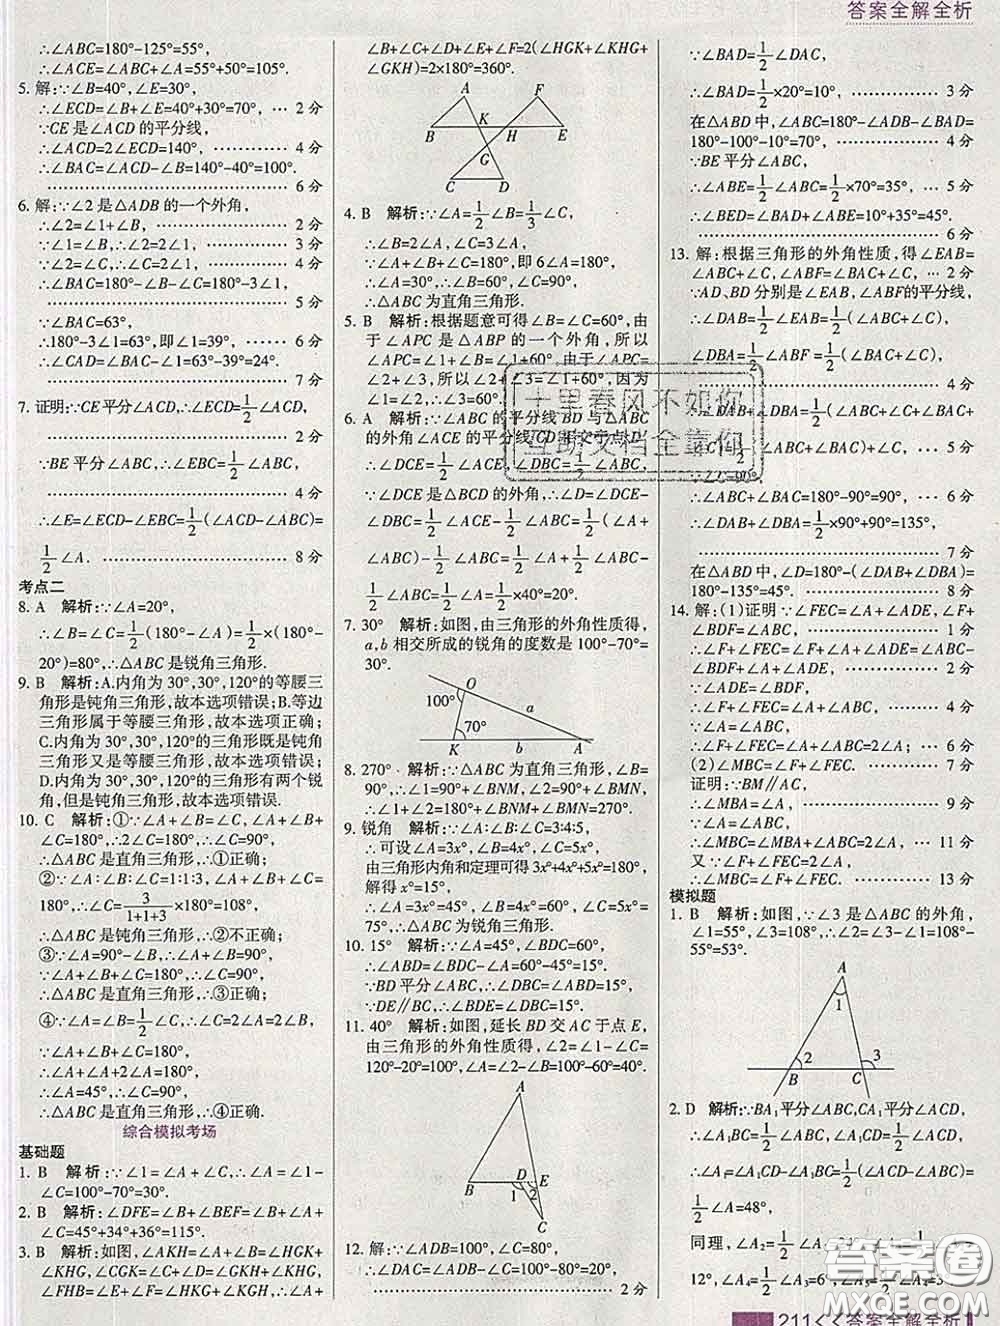 答案全解全析
∴∠ABC=180°-125°=55°,
∴∠ACE=∠ABC+∠A=55°+50°=105°.
5. 解:∵∠B=40°,∠E=30°,
∴∠ECD=∠B+∠E=40°+30°=70°, … 2 分
∵CE是∠ACD的平分线,
∴∠ACD=2∠ECD=140°, … 4 分
∴∠BAC=∠ACD-∠B=140°-40°=100°.
… 6 分
6. 解:∵∠2是△ADB的一个外角,
∴∠2=∠1+∠B, … 2 分
∵∠1=∠B,∴∠2=2∠1, … 3 分
∵∠2=∠C,∴∠C=2∠1, … 4 分
∴∠BAC=180°-∠B-∠C=180°-3∠1,
… 5 分
∵∠BAC=63°,
∴180°-3∠1=63°,即∠1=39°, … 6 分
∴∠CAD=∠BAC-∠1=63°-39°=24°.
… 7 分
7. 证明:∵CE平分∠ACD,∴∠ECD=1/2∠ACD,
… 2 分
∵BE平分∠ABC,∴∠EBC=1/2∠ABC,
… 4 分
∴∠E=∠ECD-∠EBC=1/2(∠ACD-∠ABC)=
1/2∠A. … 8 分
考点二
8. A 解析:∵∠A=20°,
∴∠B=∠C=1/2(180°-∠A)=1/2×(180°-
20°)=80°,∴△ABC是锐角三角形.
9. B 解析:A.内角为30°,30°,120°的等腰三
角形是钝角三角形,故本选项错误;B.等边
三角形属于等腰三角形,故本选项正确;
C.内角为30°,30°,120°的三角形既是钝角
三角形又是等腰三角形,故本选项错误;
D.内角为30°,30°,120°的三角形有两个锐
角,但是钝角三角形,故本选项错误.
10. C 解析:①∵∠A+∠B=∠C,∠A+∠B+
∠C=180°,∴2∠C=180°,∴∠C=90°,
∴△ABC是直角三角形,∴①正确;
②∵∠A:∠B:∠C=1:1:3,∠A+∠B+∠C=
180°,∴∠C=3/(1+1+3)×180°=108°,
∴△ABC是钝角三角形,∴②不正确;
③∵∠A=90°-∠B,∴∠A+∠B=90°,
∵∠A+∠B+∠C=180°,∴∠C=90°,
∴△ABC是直角三角形,∴③正确;
④∵∠A=∠B=1/2∠C,∴∠C=2∠A=2∠B,
∵∠A+∠B+∠C=180°,
∴∠A+∠A+2∠A=180°,
∴∠A=45°,∴∠C=90°,
∴△ABC是直角三角形,∴④正确.
综合模拟考场
基础题
1. B 解析:∵∠1=∠A+∠C,∴∠A=∠1-
∠C=100°-70°=30°.
2. B 解析:∠DFE=∠B+∠BEF=∠B+∠A+
∠C=45°+34°+36°=115°.
3. B 解析:如图,∠AKH=∠A+∠B=∠HGK+
∠KHG,∠CGK=∠C+∠D=∠GKH+∠KHG,
∠FHB=∠E+∠F=∠HKG+∠KGH,∴∠A+
∠B+∠C+∠D+∠E+∠F=2(∠HGK+∠KHG+
∠GKH)=2×180°=360°.
A F
K
B H E
G
C D
4. B 解析:∵∠A=1/2∠B=1/3∠C,
∴∠B=2∠A,∠C=3∠A,
∵∠A+∠B+∠C=180°,即6∠A=180°,
∴∠A=30°,∴∠B=60°,∠C=90°,
∴△ABC为直角三角形.
5. B 解析:根据题意可得∠B=∠C=60°,由
于∠APC是△ABP的一个外角,所以
∠APC=∠1+∠B=∠1+60°.由于∠APC=
∠2+∠3,所以∠2+∠3=∠1+60°,因为
∠1=∠2,所以∠3=60°.
6. A 解析:∵∠ABC的平分线BD与∠ABC
的外角∠ACE的平分线CD相交于点D,
∴∠DCE=1/2∠ACE,∠DBC=1/2∠ABC,
∵∠DCE是△BCD的外角,∴∠D=∠DCE-
∠DBC=1/2∠ACE-1/2∠ABC=1/2(∠A+
∠ABC)-1/2∠ABC=1/2∠A+1/2∠ABC-
1/2∠ABC=1/2∠A=1/2×40°=20°.
7. 30° 解析:如图,由三角形的外角性质得,
a,b相交所成的锐角的度数是100°-70°=
30°.
O
100°
a
70°
K b A
8. 270° 解析:∵△ABC为直角三角形,∠B=
90°,∴∠1=90°+∠BNM,∠2=90°+∠BMN,
∴∠1+∠2=180°+∠BNM+∠BMN=270°.
9. 锐角 解析:∵∠A:∠B:∠C=3:4:5,
∴可设∠A=3x°,∠B=4x°,∠C=5x°,
由三角形内角和定理可得3x°+4x°+5x°=180°,
解得x°=15°,
∴∠A=3x°=45°,∠B=4x°=60°,∠C=5x°=
75°,∴△ABC为锐角三角形.
10. 15° 解析:∵∠A=45°,∠BDC=60°,
∴∠ABD=∠BDC-∠A=60°-45°=15°.
∵BD平分∠ABC,∴∠DBC=∠ABD=15°,
∵DE∥BC,∴∠BDE=∠DBC=15°.
11. 40° 解析:如图,延长BD交AC于点E,
由三角形的外角性质得,∠2=∠1-∠C=
120°-20°=100°,∴∠A=∠2-∠B=100°-60°=40°.
A
B D E
1 2
C
12. 解:∵∠ADB=100°,∠C=80°,
∴∠DAC=∠ADB-∠C=100°-80°=20°.
… 2 分
∵∠BAD=1/2∠DAC,
∴∠BAD=1/2×20°=10°, … 3 分
在△ABD中,∠ABC=180°-∠ADB-∠BAD=
180°-100°-10°=70°; … 4 分
∵BE平分∠ABC,
∴∠ABE=1/2∠ABC=1/2×70°=35°, … 5 分
∴∠BED=∠BAD+∠ABE=10°+35°=45°.
… 6 分
13. 解:根据三角形的外角性质,得∠EAB=
∠ABC+∠C,∠ABF=∠BAC+∠C, … 2 分
∵AD、BD分别是∠EAB,∠ABF的平分线,
∴∠DAB=1/2∠EAB=1/2(∠ABC+∠C),
∠DBA=1/2∠ABF=1/2(∠BAC+∠C),
∵∠C=90°,
∴∠ABC+∠BAC=180°-90°=90°, … 6 分
∴∠DAB+∠DBA=1/2×90°+90°=135°,
… 7 分
在△ABD中,∠D=180°-(∠DAB+∠DBA)=
180°-135°=45°. … 8 分
14. 解:(1)证明:∵∠FEC=∠A+∠ADE,∠F+
∠BDF=∠ABC, … 1 分
∴∠F+∠FEC=∠F+∠A+∠ADE=∠ABC-
∠BDF+∠A+∠ADE, … 2 分
∵∠ADE=∠BDF,
∴∠F+∠FEC=∠A+∠ABC, … 4 分
∵∠A=∠ABC,
∴∠F+∠FEC=∠A+∠ABC=2∠A; … 6 分
(2)∠MBC=∠F+∠FEC. … 7 分
证明:∵BM∥AC,
∴∠MBA=∠A, … 9 分
∵∠A=∠ABC,
∴∠MBC=∠MBA+∠ABC=2∠A, … 11 分
又∵∠F+∠FEC=2∠A,
∴∠MBC=∠F+∠FEC. … 13 分
模拟题
1. B 解析:如图,∵∠3是△ABC的外角,
∠1=55°,∠3=108°,∴∠2=∠3-∠1=108°-
55°=53°.
A
1
2 3
B C
2. D 解析:∵BA₁平分∠ABC,CA₁平分∠ACD,
∴∠A₁BC=1/2∠ABC,∠A₁CD=1/2∠ACD,
∴∠A₁=∠A₁CD-∠A₁BC=1/2(∠ACD-∠ABC)=
1/2∠A=48°,
12°,∠A₄=1/2∠A₃=6°
十里春风不如你
互助文档全靠你
答案圈
MXQE.COM
211<<答案全解全析